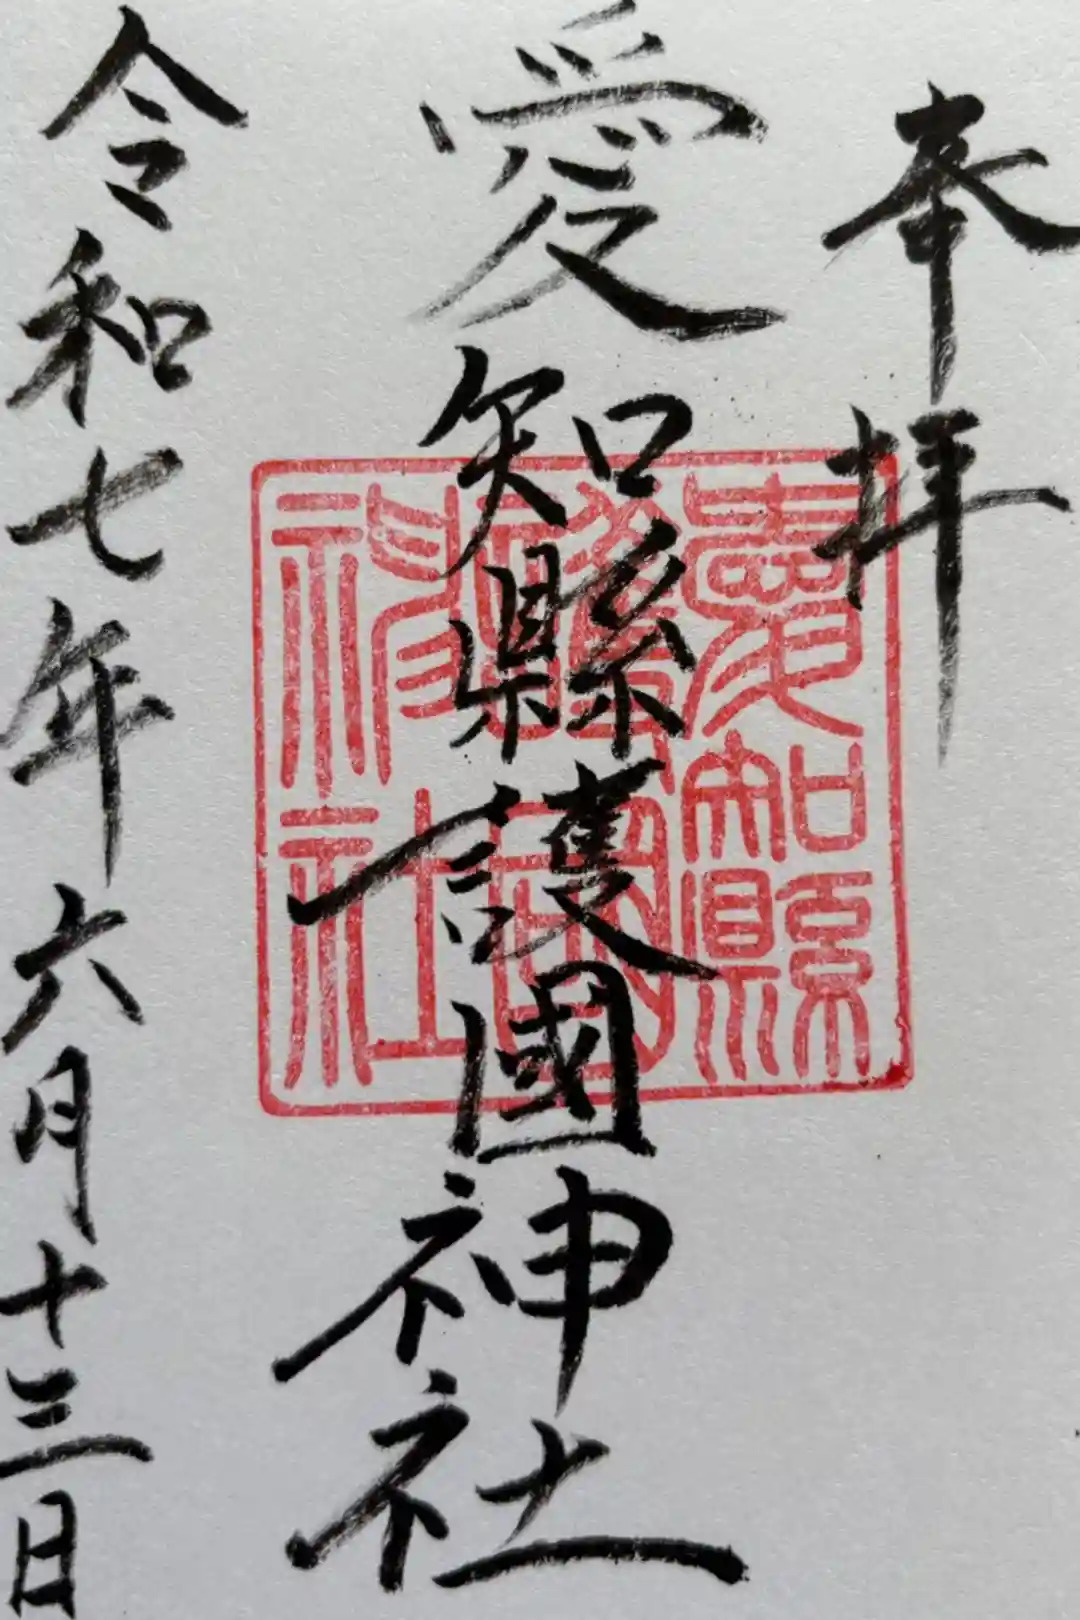 奉拝
愛知縣護國神社
愛知縣護國神社
令和七年六月十三日